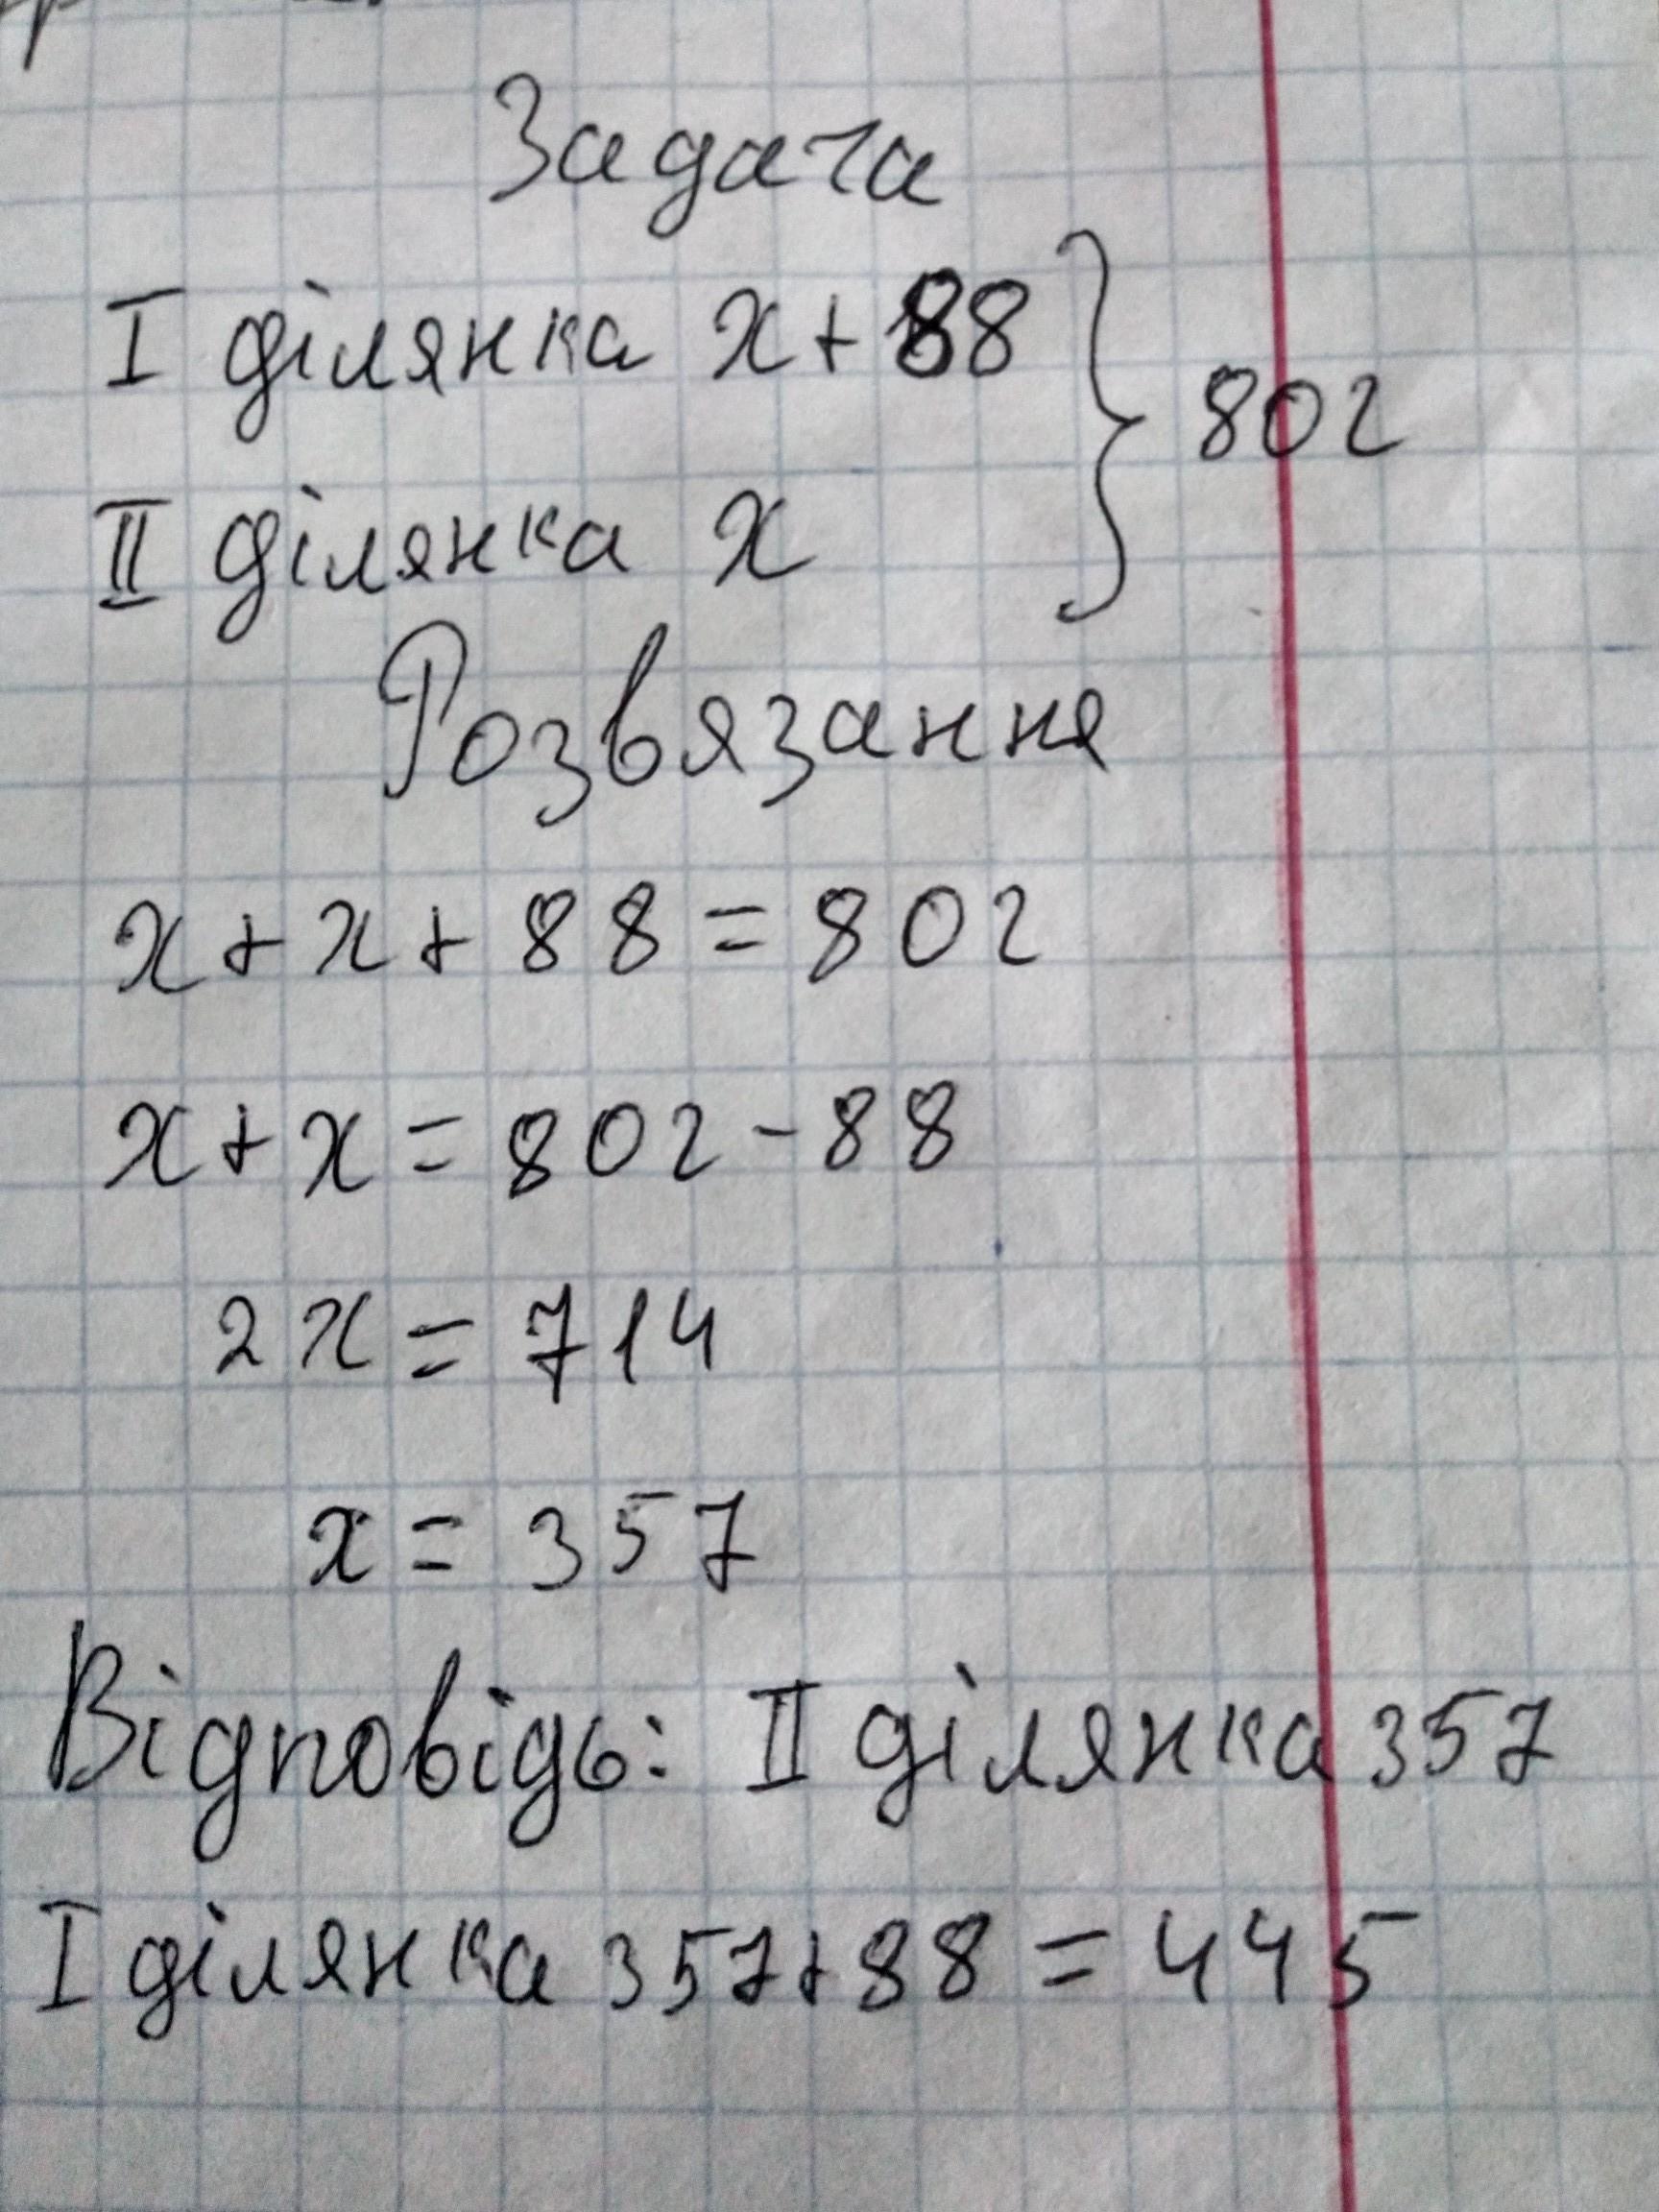 Задача
I ділянка x + 88 } 802
II ділянка x
Розвязання
x + x + 88 = 802
x + x = 802 - 88
2x = 714
x = 357
Відповідь: II ділянка 357
I ділянка 357 + 88 = 445